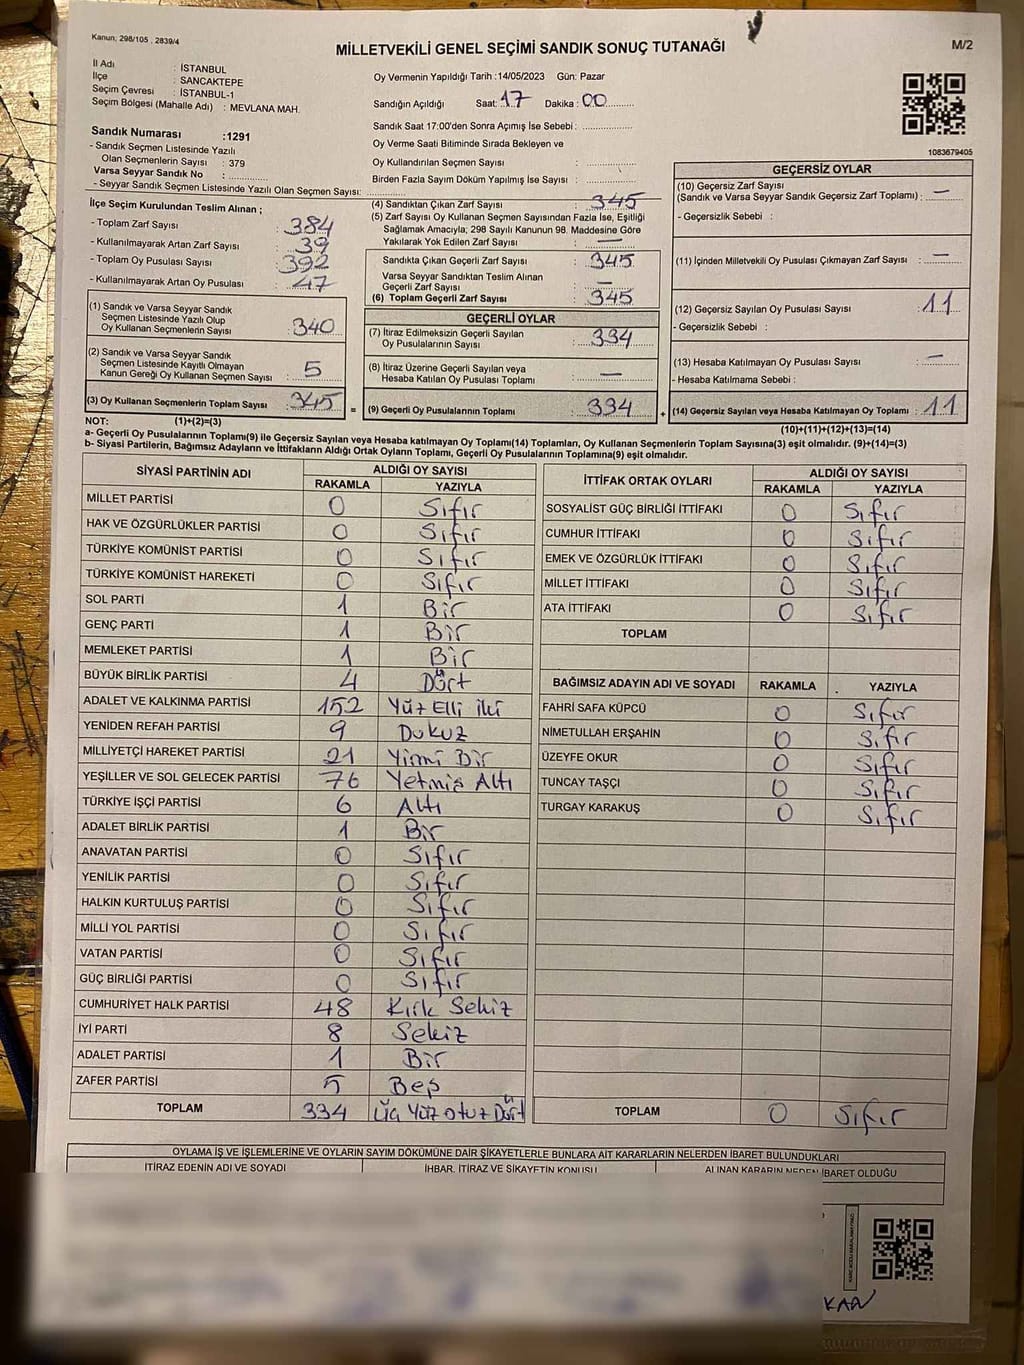 Kanun; 298/105 , 2839/4
MİLLETVEKİLİ GENEL SEÇİMİ SANDIK SONUÇ TUTANAĞI
M/2
İl Adı : İSTANBUL
İlçe : SANCAKTEPE
Seçim Çevresi : İSTANBUL-1
Seçim Bölgesi (Mahalle Adı) : MEVLANA MAH.
Sandık Numarası :1291
- Sandık Seçmen Listesinde Yazılı
Olan Seçmenlerin Sayısı : 379
Varsa Seyyar Sandık No :
- Seyyar Sandık Seçmen Listesinde Yazılı Olan Seçmen Sayısı:
Oy Vermenin Yapıldığı Tarih :14/05/2023 Gün: Pazar
Sandığın Açıldığı Saat: 17 Dakika : 00
Sandık Saat 17:00'den Sonra Açımış İse Sebebi :
Oy Verme Saati Bitiminde Sırada Bekleyen ve
Oy Kullandırılan Seçmen Sayısı :
Birden Fazla Sayım Döküm Yapılmış İse Sayısı :
1083679405
İlçe Seçim Kurulundan Teslim Alınan ;
- Toplam Zarf Sayısı : 384
- Kullanılmayarak Artan Zarf Sayısı : 39
- Toplam Oy Pusulası Sayısı : 392
- Kullanılmayarak Artan Oy Pusulası : 47
(1) Sandık ve Varsa Seyyar Sandık
Seçmen Listesinde Yazılı Olup
Oy Kullanan Seçmenlerin Sayısı : 340
(2) Sandık ve Varsa Seyyar Sandık
Seçmen Listesinde Kayıtlı Olmayan
Kanun Gereği Oy Kullanan Seçmen Sayısı : 5
(3) Oy Kullanan Seçmenlerin Toplam Sayısı : 345 =
(4) Sandıktan Çıkan Zarf Sayısı : 345
(5) Zarf Sayısı Oy Kullanan Seçmen Sayısından Fazla İse, Eşitliği
Sağlamak Amacıyla; 298 Sayılı Kanunun 98. Maddesine Göre
Yakılarak Yok Edilen Zarf Sayısı : —
Sandıkta Çıkan Geçerli Zarf Sayısı : 345
Varsa Seyyar Sandıktan Teslim Alınan
Geçerli Zarf Sayısı : —
(6) Toplam Geçerli Zarf Sayısı : 345
GEÇERLİ OYLAR
(7) İtiraz Edilmeksizin Geçerli Sayılan
Oy Pusulalarının Sayısı : 334
(8) İtiraz Üzerine Geçerli Sayılan veya
Hesaba Katılan Oy Pusulası Toplamı : —
(9) Geçerli Oy Pusulalarının Toplamı : 334 +
GEÇERSİZ OYLAR
(10) Geçersiz Zarf Sayısı
(Sandık ve Varsa Seyyar Sandık Geçersiz Zarf Toplamı) : —
- Geçersizlik Sebebi :
(11) İçinden Milletvekili Oy Pusulası Çıkmayan Zarf Sayısı : —
(12) Geçersiz Sayılan Oy Pusulası Sayısı : 11
- Geçersizlik Sebebi :
(13) Hesaba Katılmayan Oy Pusulası Sayısı : —
- Hesaba Katılmama Sebebi :
(14) Geçersiz Sayılan veya Hesaba Katılmayan Oy Toplamı : 11
NOT: (1)+(2)=(3)
(10)+(11)+(12)+(13)=(14)
a- Geçerli Oy Pusulalarının Toplamı(9) ile Geçersiz Sayılan veya Hesaba katılmayan Oy Toplamı(14) Toplamları, Oy Kullanan Seçmenlerin Toplam Sayısına(3) eşit olmalıdır. (9)+(14)=(3)
b- Siyasi Partilerin, Bağımsız Adayların ve İttifakların Aldığı Ortak Oyların Toplamı, Geçerli Oy Pusulalarının Toplamına(9) eşit olmalıdır.
SİYASİ PARTİNİN ADI ALDIĞI OY SAYISI
RAKAMLA YAZIYLA
MİLLET PARTİSİ 0 Sıfır
HAK VE ÖZGÜRLÜKLER PARTİSİ 0 Sıfır
TÜRKİYE KOMÜNİST PARTİSİ 0 Sıfır
TÜRKİYE KOMÜNİST HAREKETİ 0 Sıfır
SOL PARTİ 1 Bir
GENÇ PARTİ 1 Bir
MEMLEKET PARTİSİ 1 Bir
BÜYÜK BİRLİK PARTİSİ 4 Dört
ADALET VE KALKINMA PARTİSİ 152 Yüz Elli iki
YENİDEN REFAH PARTİSİ 9 Dokuz
MİLLİYETÇİ HAREKET PARTİSİ 21 Yirmi Bir
YEŞİLLER VE SOL GELECEK PARTİSİ 76 Yetmiş Altı
TÜRKİYE İŞÇİ PARTİSİ 6 Altı
ADALET BİRLİK PARTİSİ 1 Bir
ANAVATAN PARTİSİ 0 Sıfır
YENİLİK PARTİSİ 0 Sıfır
HALKIN KURTULUŞ PARTİSİ 0 Sıfır
MİLLİ YOL PARTİSİ 0 Sıfır
VATAN PARTİSİ 0 Sıfır
GÜÇ BİRLİĞİ PARTİSİ 0 Sıfır
CUMHURİYET HALK PARTİSİ 48 Kırk Sekiz
İYİ PARTİ 8 Sekiz
ADALET PARTİSİ 1 Bir
ZAFER PARTİSİ 5 Beş
TOPLAM 334 Üç Yüz otuz Dört
İTTİFAK ORTAK OYLARI ALDIĞI OY SAYISI
RAKAMLA YAZIYLA
SOSYALİST GÜÇ BİRLİĞİ İTTİFAKI 0 Sıfır
CUMHUR İTTİFAKI 0 Sıfır
EMEK VE ÖZGÜRLÜK İTTİFAKI 0 Sıfır
MİLLET İTTİFAKI 0 Sıfır
ATA İTTİFAKI 0 Sıfır
TOPLAM
BAĞIMSIZ ADAYIN ADI VE SOYADI RAKAMLA YAZIYLA
FAHRİ SAFA KÜPCÜ 0 Sıfır
NİMETULLAH ERŞAHİN 0 Sıfır
ÜZEYFE OKUR 0 Sıfır
TUNCAY TAŞÇI 0 Sıfır
TURGAY KARAKUŞ 0 Sıfır
TOPLAM 0 Sıfır
OYLAMA İŞ VE İŞLEMLERİNE VE OYLARIN SAYIM DÖKÜMÜNE DAİR ŞİKAYETLERLE BUNLARA AİT KARARLARIN NELERDEN İBARET BULUNDUKLARI
İTİRAZ EDENİN ADI VE SOYADI İHBAR, İTİRAZ VE ŞİKAYETİN KONUSU ALINAN KARARIN NEDEN İBARET OLDUĞU
KAN